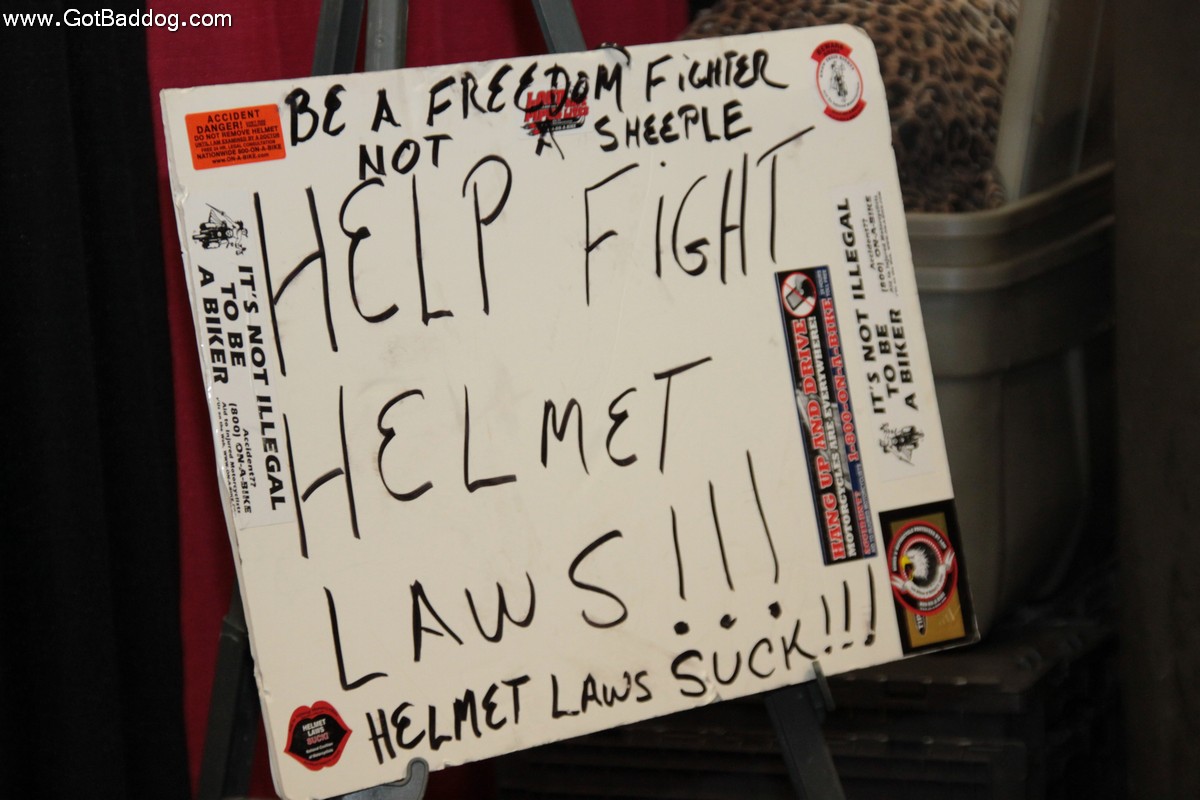 www.GotBaddog.com
BE A FREEDOM FiGHTER
NOT A SHEEPLE
HELP FiGHT
HELMET
LAWS!!!
HELMET LAWS SUCK!!!
ACCIDENT
DANGER!
DO NOT REMOVE HELMET
NATIONWIDE 800-ON-A-BIKE
WWW.ON-A-BIKE.COM
IT'S NOT ILLEGAL
TO BE
A BIKER
Accident??
(800) ON-A-BIKE
Aid to Injured Motorcyclists
HANG UP AND DRIVE
MOTORCYCLES ARE EVERYWHERE!
1-800-ON-A-BIKE
IT'S NOT ILLEGAL
TO BE
A BIKER
Accident??
(800) ON-A-BIKE
HELMET
LAWS
SUCK!